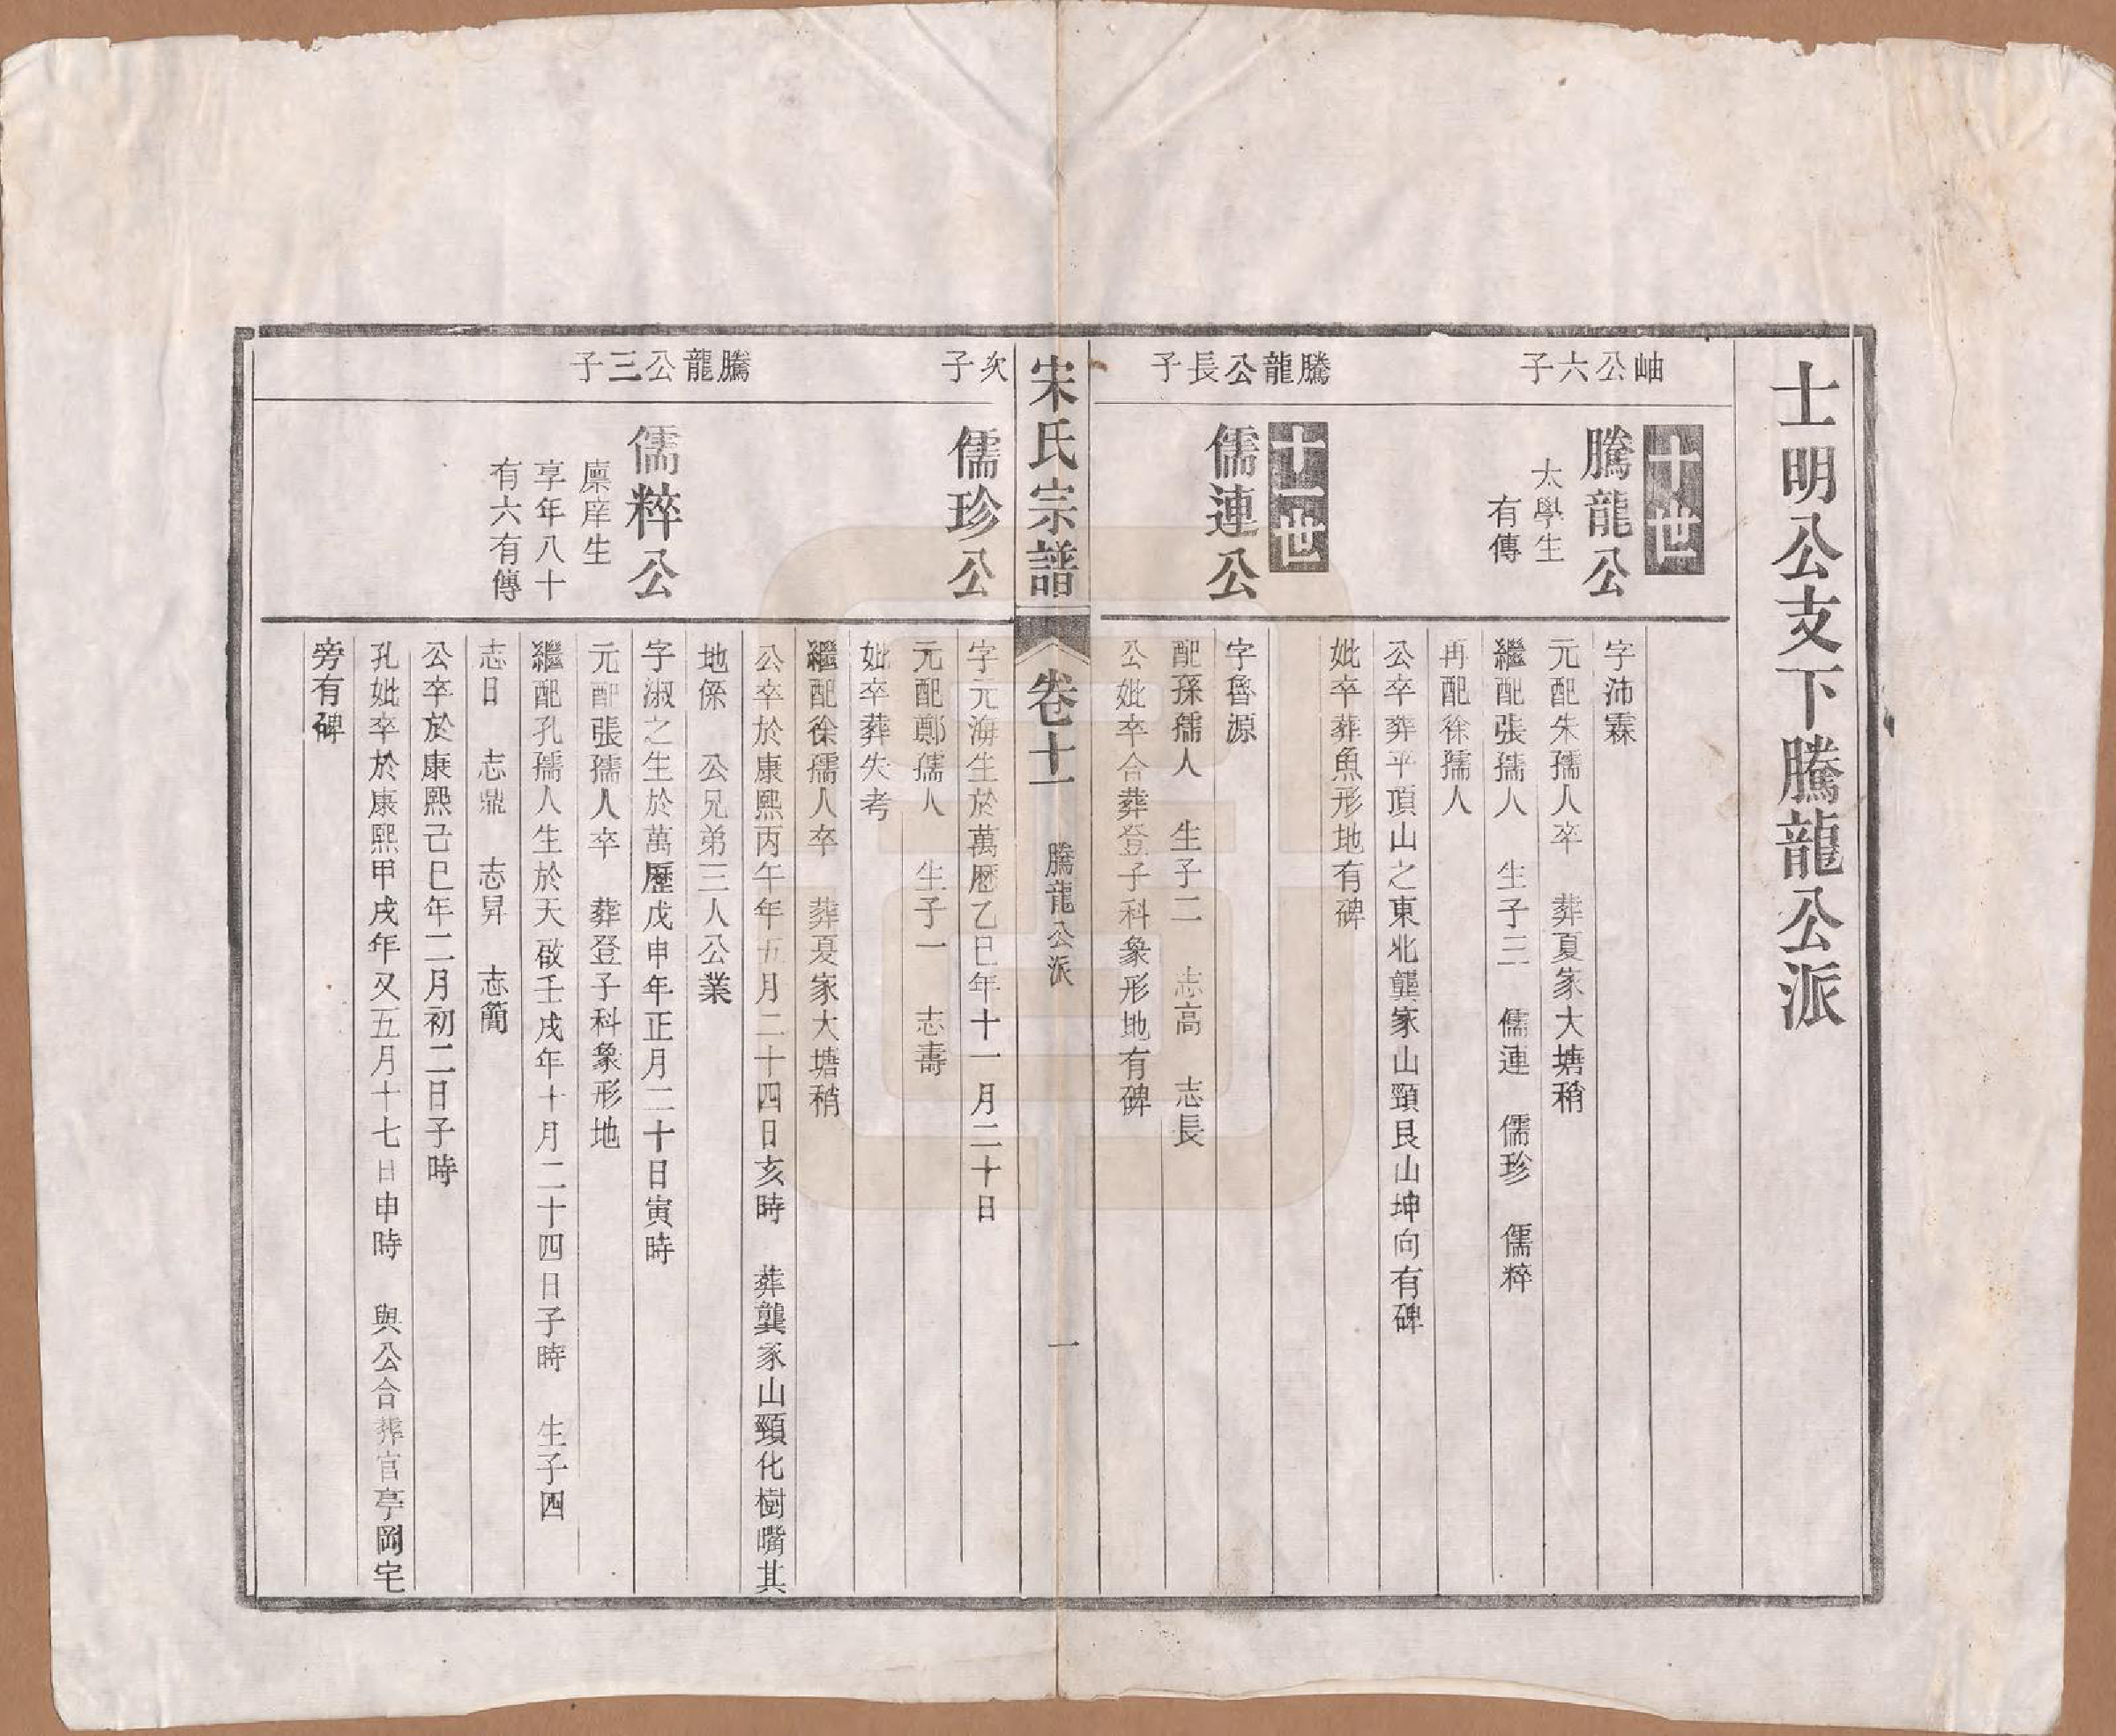 士明公支下騰龍公派
岫公六子
十世
騰龍公
太學生
有傳
字沛霖
元配朱孺人卒　葬夏家大塘稍
繼配張孺人　生子三　儒連　儒珍　儒粹
再配徐孺人
公卒葬平頂山之東北龔家山頸艮山坤向有碑
妣卒葬魚形地有碑
騰龍公長子
十一世
儒連公
字魯源
配孫孺人　生子二　志高　志長
公妣卒合葬登子科象形地有碑
宋氏宗譜
卷十一
騰龍公派
一
次子
儒珍公
字元海生於萬歷乙巳年十一月二十日
元配鄭孺人　生子一　志壽
妣卒葬失考
繼配徐孺人卒　葬夏家大塘稍
公卒於康熙丙午年五月二十四日亥時　葬龔家山頸化樹嘴其
地係　公兄弟三人公業
騰龍公三子
儒粹公
廩庠生
享年八十
有六有傳
字淑之生於萬歷戊申年正月二十日寅時
元配張孺人卒　葬登子科象形地
繼配孔孺人生於天啟壬戌年十月二十四日子時　生子四
志日　志鼎　志昇　志簡
公卒於康熙己巳年二月初二日子時
孔妣卒於康熙甲戌年又五月十七日申時　與公合葬官亭岡宅
旁有碑